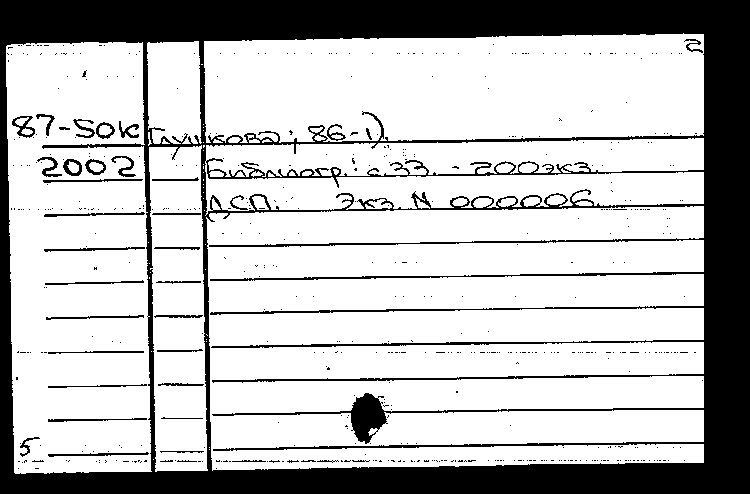 2
87-50к Глушкова; 86-1).
2002 Библиогр.: с.33. - 200экз.
ДСП. Экз. N 000006.
5